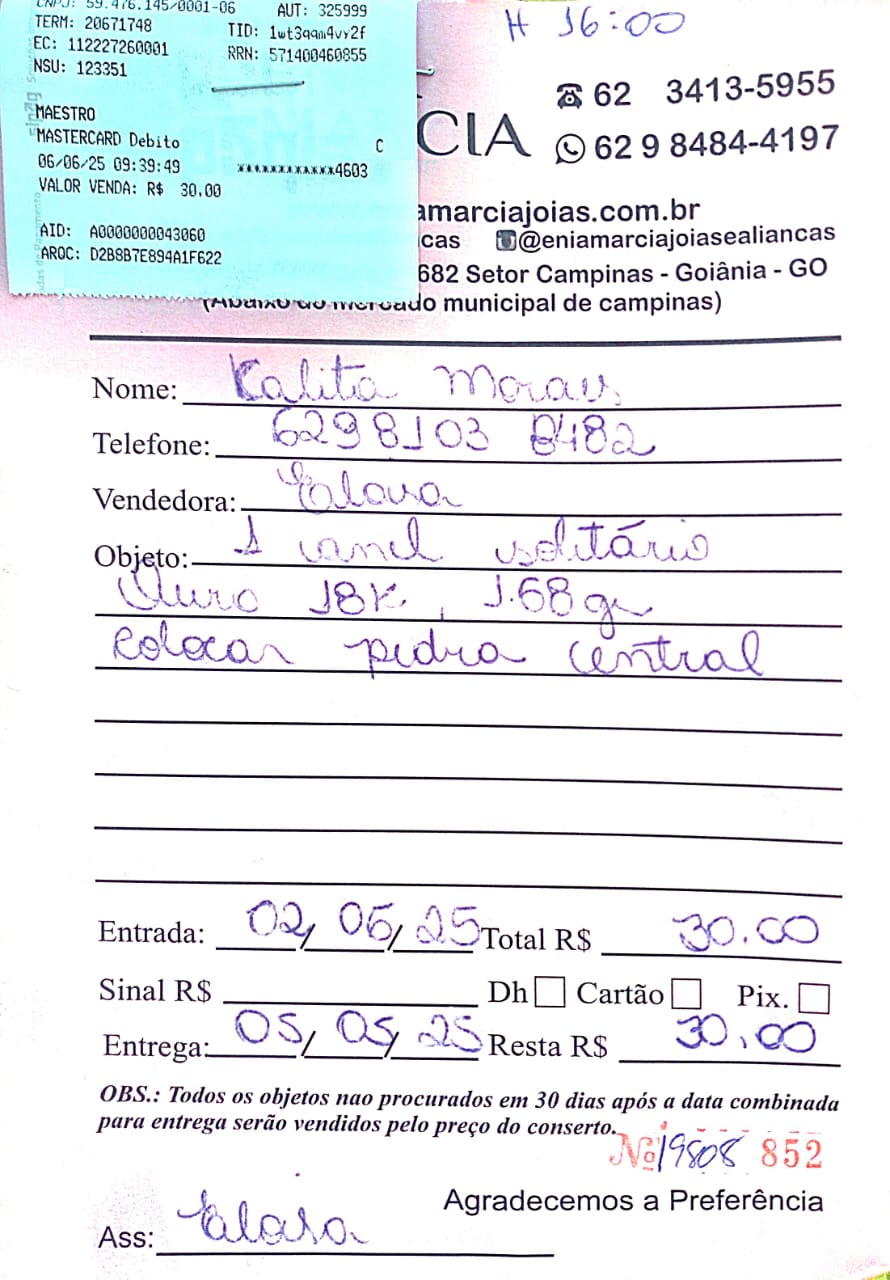 CNPJ: 59.476.145/0001-06 AUT: 325999
TERM: 20671748 TID: 1wt3qqm4vy2f
EC: 112227260001 RRN: 571400460855
NSU: 123351
MAESTRO
MASTERCARD Debito C
06/06/25 09:39:49 ************4603
VALOR VENDA: R$ 30,00
AID: A0000000043060
ARQC: D2B8B7E894A1F622
H 16:00
62 3413-5955
CIA 62 9 8484-4197
amarciajoias.com.br
cas @eniamarciajoiasealiancas
682 Setor Campinas - Goiânia - GO
(Abaixo do mercado municipal de campinas)
Nome: Kalita Moraes
Telefone: 6298103 8482
Vendedora: Elousa
Objeto: 1 anel solitário
Ouro 18K, 1.68gr
colocar pedra central
Entrada: 02/06/25 Total R$ 30.00
Sinal R$ Dh Cartão Pix.
Entrega: 05/05/25 Resta R$ 30,00
OBS.: Todos os objetos nao procurados em 30 dias após a data combinada
para entrega serão vendidos pelo preço do conserto.
Nº 19808 852
Agradecemos a Preferência
Ass: